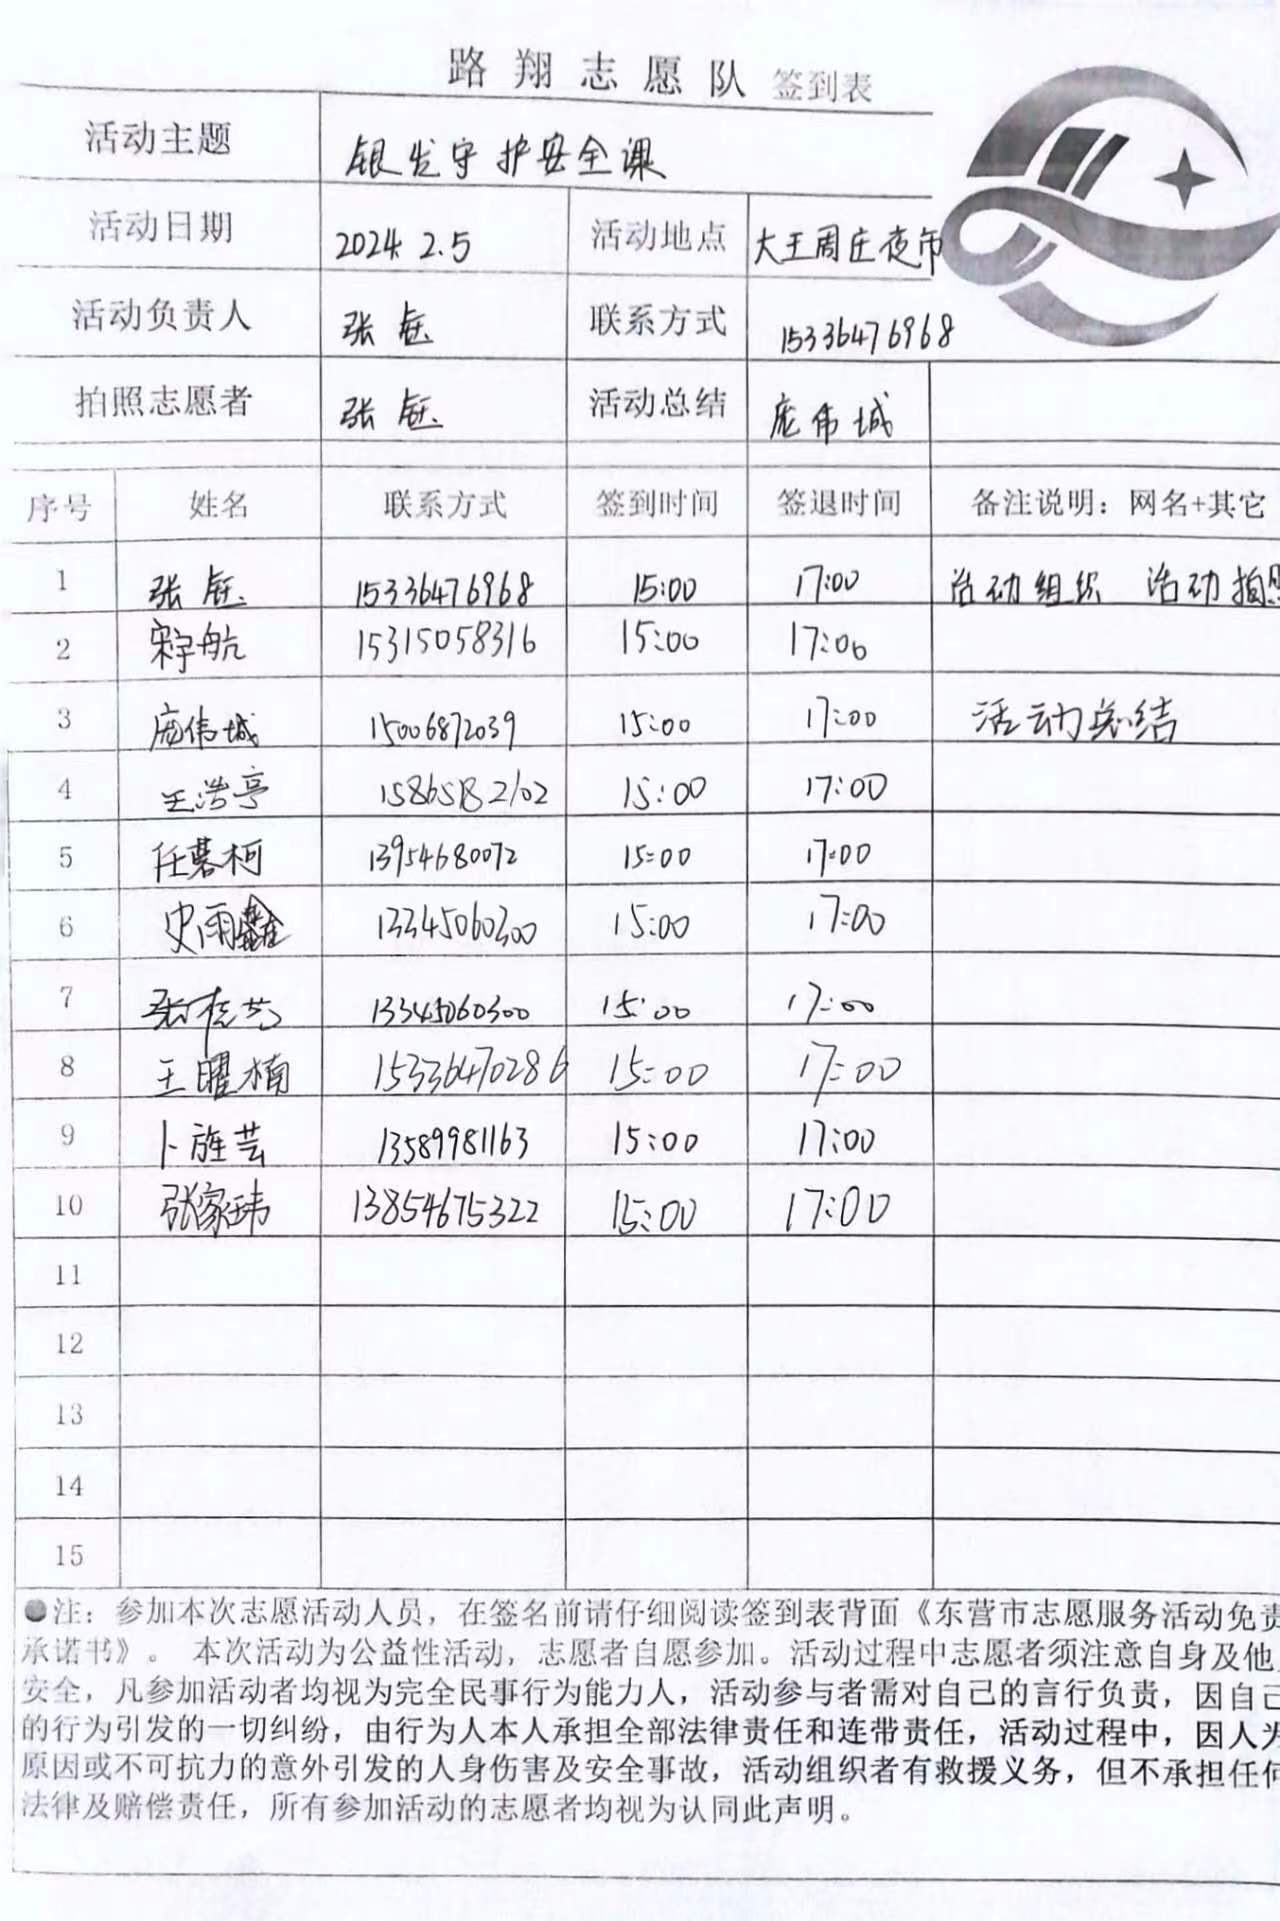 路翔志愿队 签到表
活动主题 银发守护安全课
活动日期 2024.2.5 活动地点 大王周庄夜市
活动负责人 张钰 联系方式 15336476968
拍照志愿者 张钰 活动总结 庞伟城
序号 姓名 联系方式 签到时间 签退时间 备注说明：网名+其它
1 张钰 15336476968 15:00 17:00 活动组织 活动拍照
2 宋宇航 15315058316 15:00 17:00
3 庞伟城 15006872039 15:00 17:00 活动总结
4 王浩亭 15:00 17:00
5 任慕柯 13954680072 15:00 17:00
6 史雨鑫 13345060300 15:00 17:00
7 13345060300 15:00 17:00
8 王曜楠 15336470286 15:00 17:00
9 卜旌芸 13589981163 15:00 17:00
10 张家玮 13854675322 15:00 17:00
11
12
13
14
15
●注：参加本次志愿活动人员，在签名前请仔细阅读签到表背面《东营市志愿服务活动免责
承诺书》。 本次活动为公益性活动，志愿者自愿参加。活动过程中志愿者须注意自身及他
安全，凡参加活动者均视为完全民事行为能力人，活动参与者需对自己的言行负责，因自己
的行为引发的一切纠纷，由行为人本人承担全部法律责任和连带责任，活动过程中，因人为
原因或不可抗力的意外引发的人身伤害及安全事故，活动组织者有救援义务，但不承担任何
法律及赔偿责任，所有参加活动的志愿者均视为认同此声明。